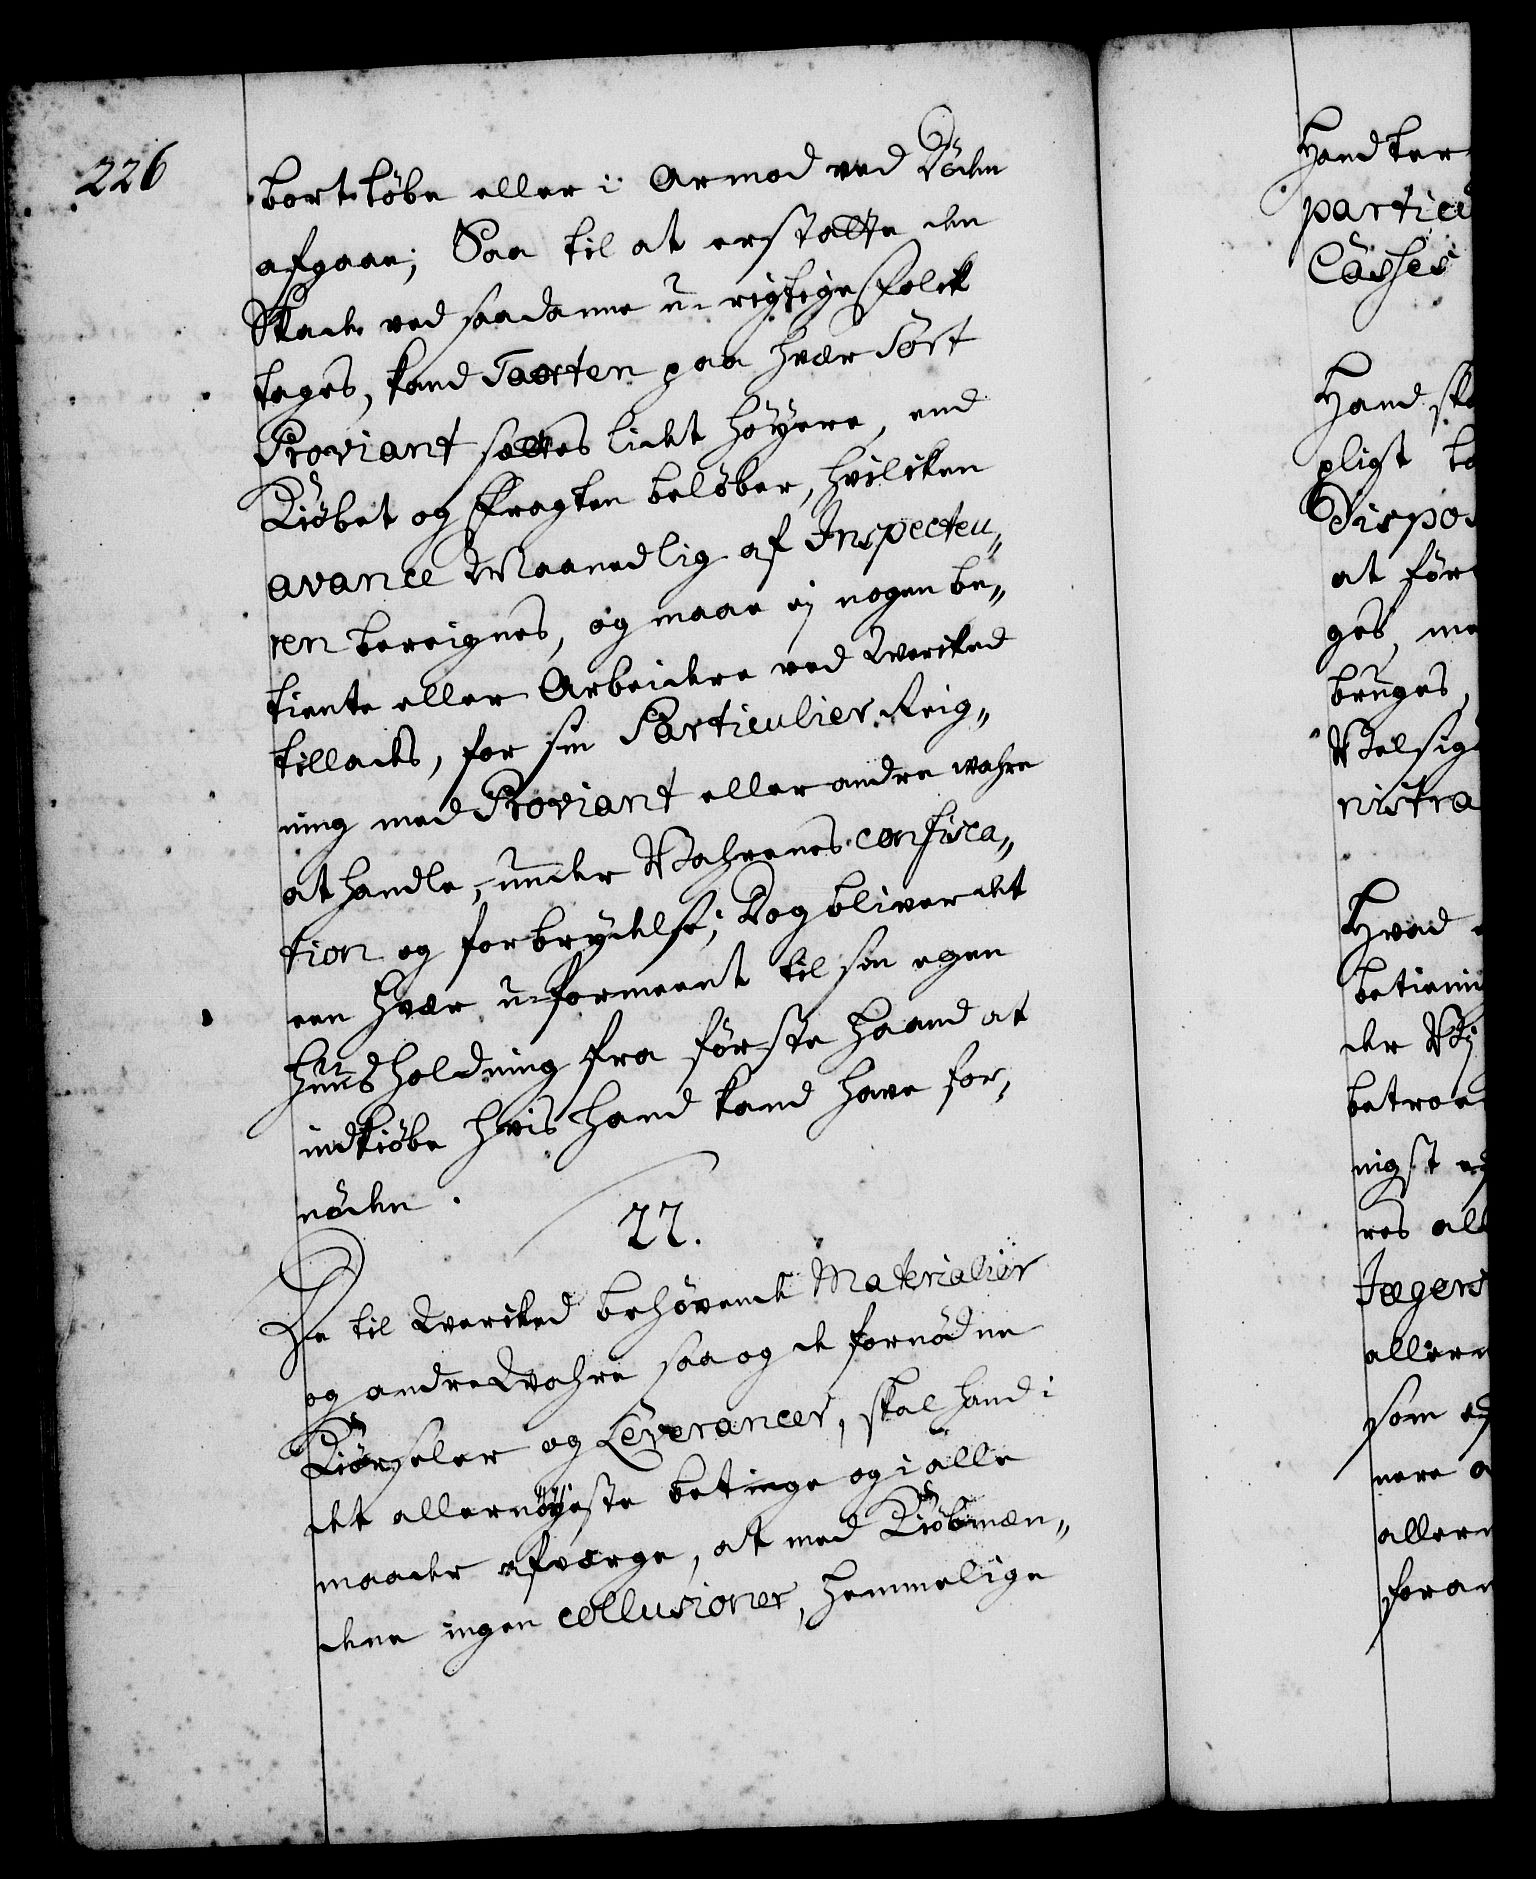 226
bortløbe eller i Armod ved Døden
afgaar; Saa til at erstatte den
Skade ved saadanne u-rigtige Folck
tages, kand Taxten paa hver Sort
Proviant settes lidet høyere, end
Kiøbet og Fragten beløber, hvilcken
avance Maanedlig af Inspecteu„
ren bereignes, og maae ej nogen be„
tiente eller Arbeidere ved Wercked
tillades, for sin Particulier Reig„
ning med Proviant eller andre wahre
at handle, under Wahrenes confisca„
tion og forbrydelse; Dog bliver det
een hver u-formeent til sin egen
Huusholdning fra første Haand at
indkiøbe hvis hand kand have for„
nøden.
22.
De til Wercked behøvende Materialier
og andre Wahre saa og de fornødne
Kiørseler og Leverancer, skal hand i
det allernøyeste betinge og i alle
maader afværge, at med Kiøbmæn„
dene ingen collusioner, hemmelige
Hand ker
particu
Casses
Hand ska
pligt
Dispos
at før
ges, me
bruges,
Velsig
nistra
Hvad
betienin
der Vj
betroe
nigst
res all
Jægers
allern
som
nere
allern
foran